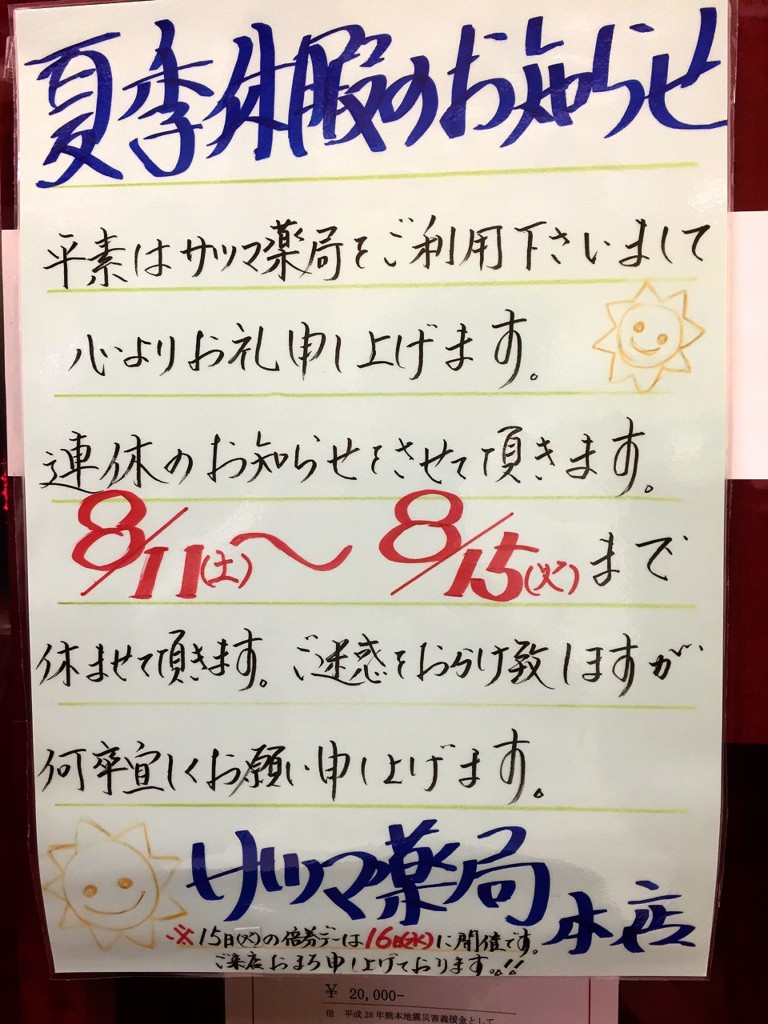 夏季休暇のお知らせ
平素はサツマ薬局をご利用下さいまして
心よりお礼申し上げます。
連休のお知らせをさせて頂きます。
8/11(土)〜8/15(火)まで
休ませて頂きます。ご迷惑をおらけ致しますが
何卒宜しくお願い申し上げます。
サツマ薬局 本店
※15日(火)の倍券デーは16日(水)に開催です。
ご来店おまち申し上げております。!!
¥ 20,000-
但 平成28年熊本地震災害義援金として